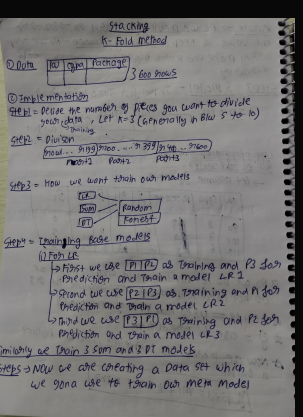 Stacking
K-Fold method
① Data IQ Cgpa Package
600 rows
② Implementation
Step1 = Decide the number of pieces you want to divide
your training data, Let K=3 (Generally in B/w 5 to 10)
Step2 = Divison
row1...r199 r200...r399 r400...r600
Part1 Part2 Part3
Step3 = How we want train our models
LR
SVM
DT
Random
Forest
Step4 = Training Base models
(i) For LR
First we use P1 P2 as Training and P3 for
Prediction and Train a model LR1
Second we use P2 P3 as Training and P1 for
Prediction and Train a model LR2
Third we use P3 P1 as Training and P2 for
Prediction and Train a model LR3
Similarly we Train 3 SVM and 3 DT models
Step5 → Now we are creating a Data set which
we gona use to train our meta model